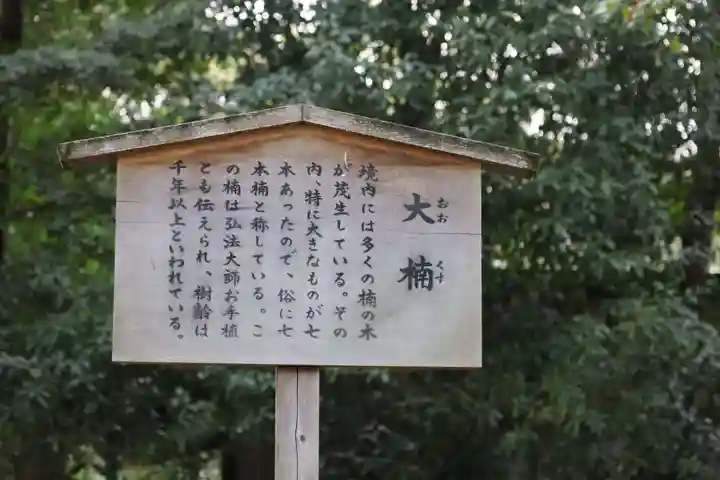 大楠
おお くす
境内には多くの楠の木
が茂生している。その
内、特に大きなものが七
本あったので、俗に七
本楠と称している。こ
の楠は弘法大師お手植
とも伝えられ、樹齢は
千年以上といわれている。